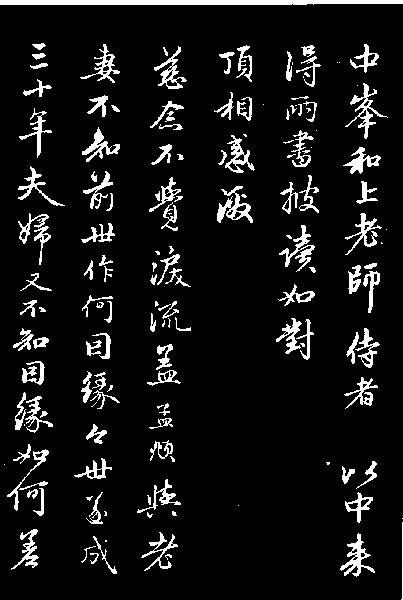 中峯和上老師侍者 以中来
得兩書披讀如對
頂相感激
慈念不覺淚流盖孟頫與老
妻不知前世作何因緣今世遂成
三十年夫婦又不知因緣如何差